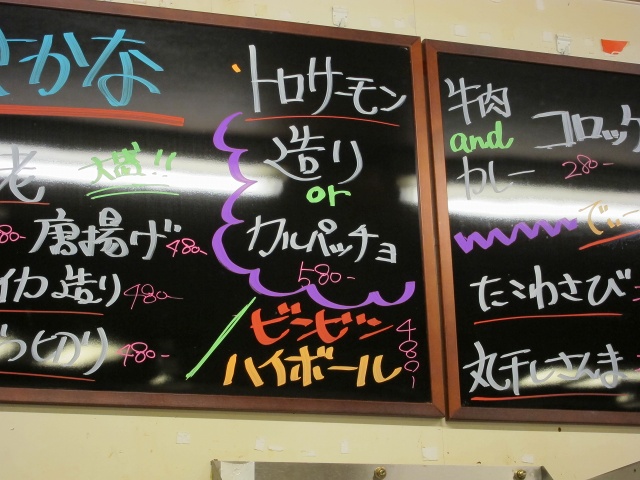 さかな
大盛!!
唐揚げ 480-
イカ造り 480-
480-
トロサーモン
造り
or
カルパッチョ
580-
ビンビン
ハイボール
480-
牛肉
and
カレー
コロッケ
280-
たこわさび
丸干しさんま